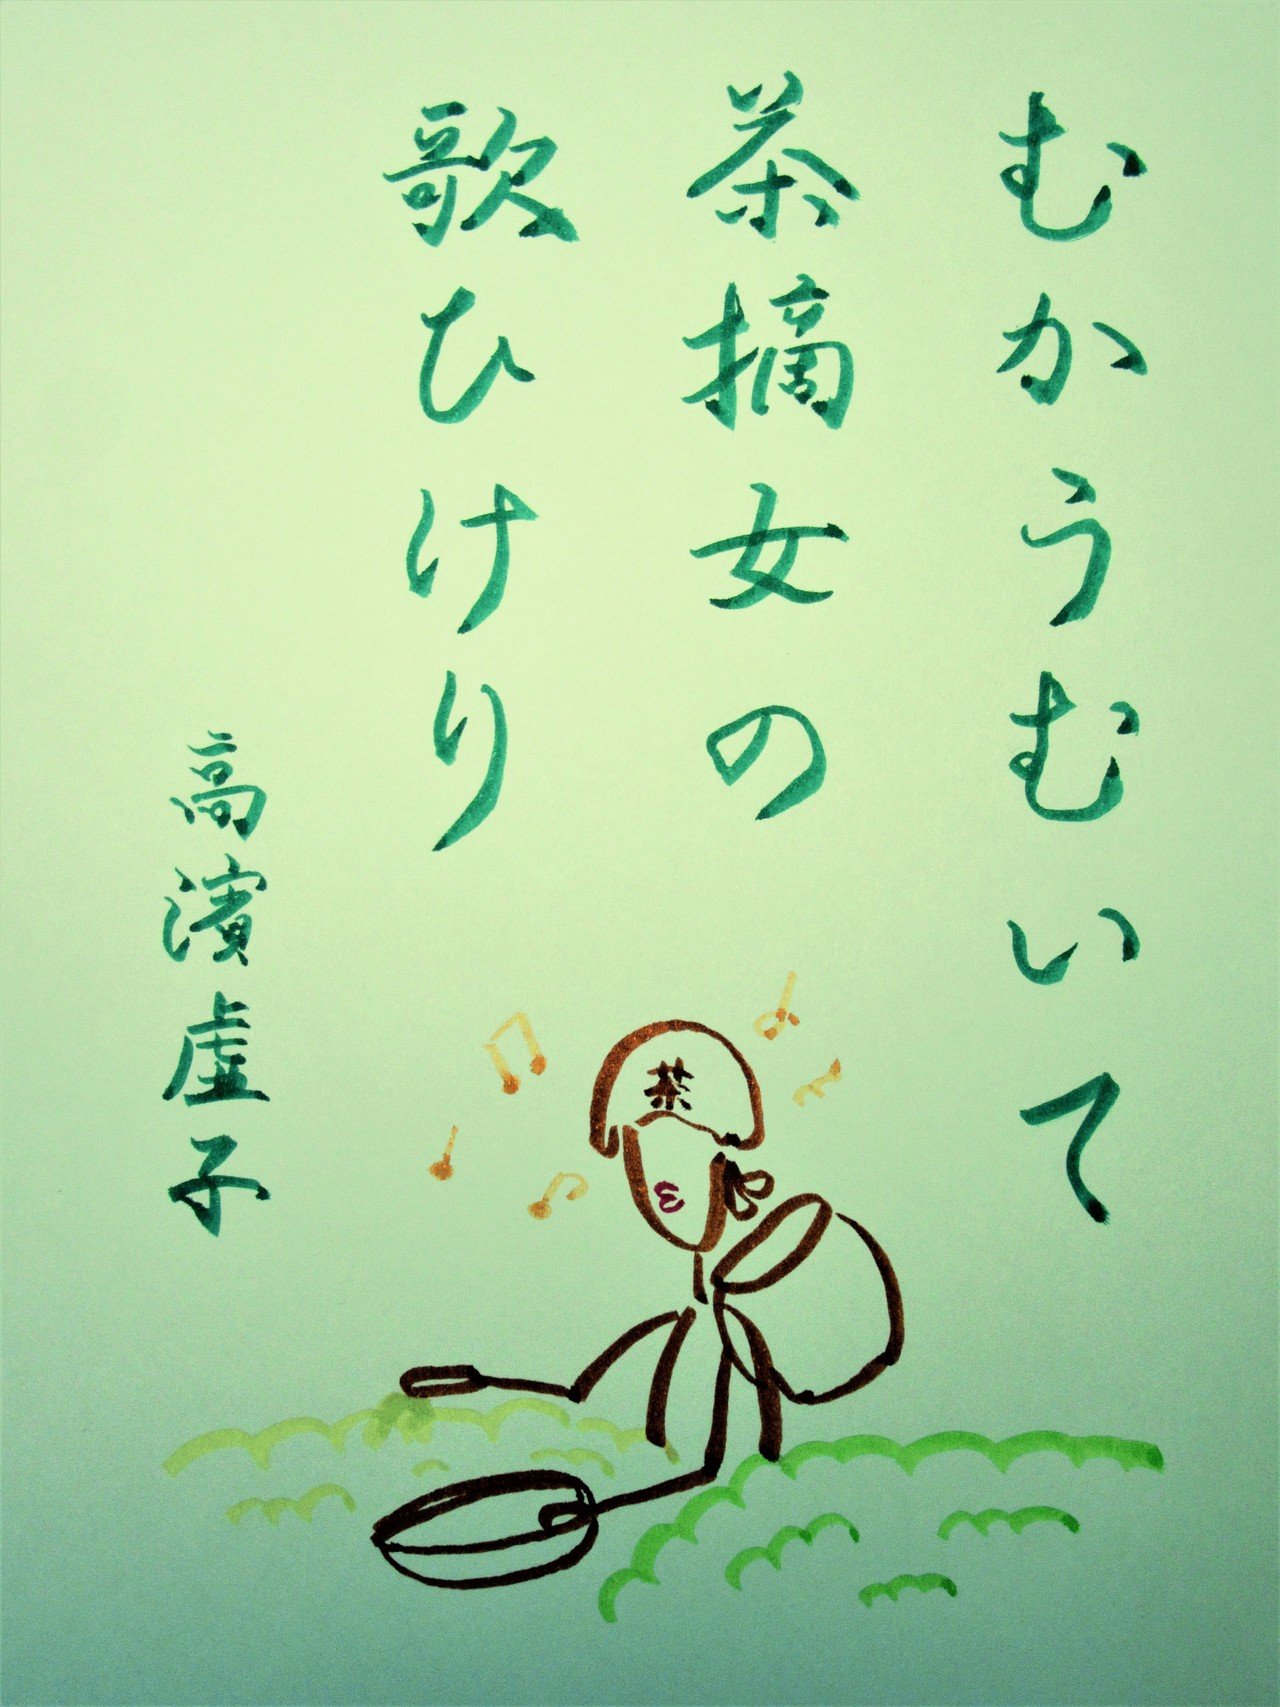 むかうむいて
茶摘女の
歌ひけり
高濱虚子
茶